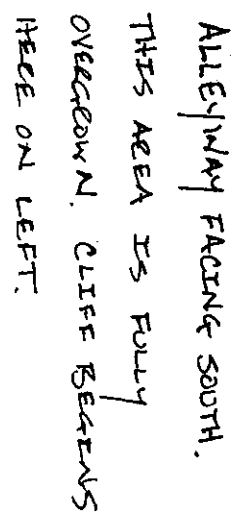 ALLEYWAY FACING SOUTH.
THIS AREA IS FULLY
OVERGROWN. CLIFF BEGINS
HERE ON LEFT.